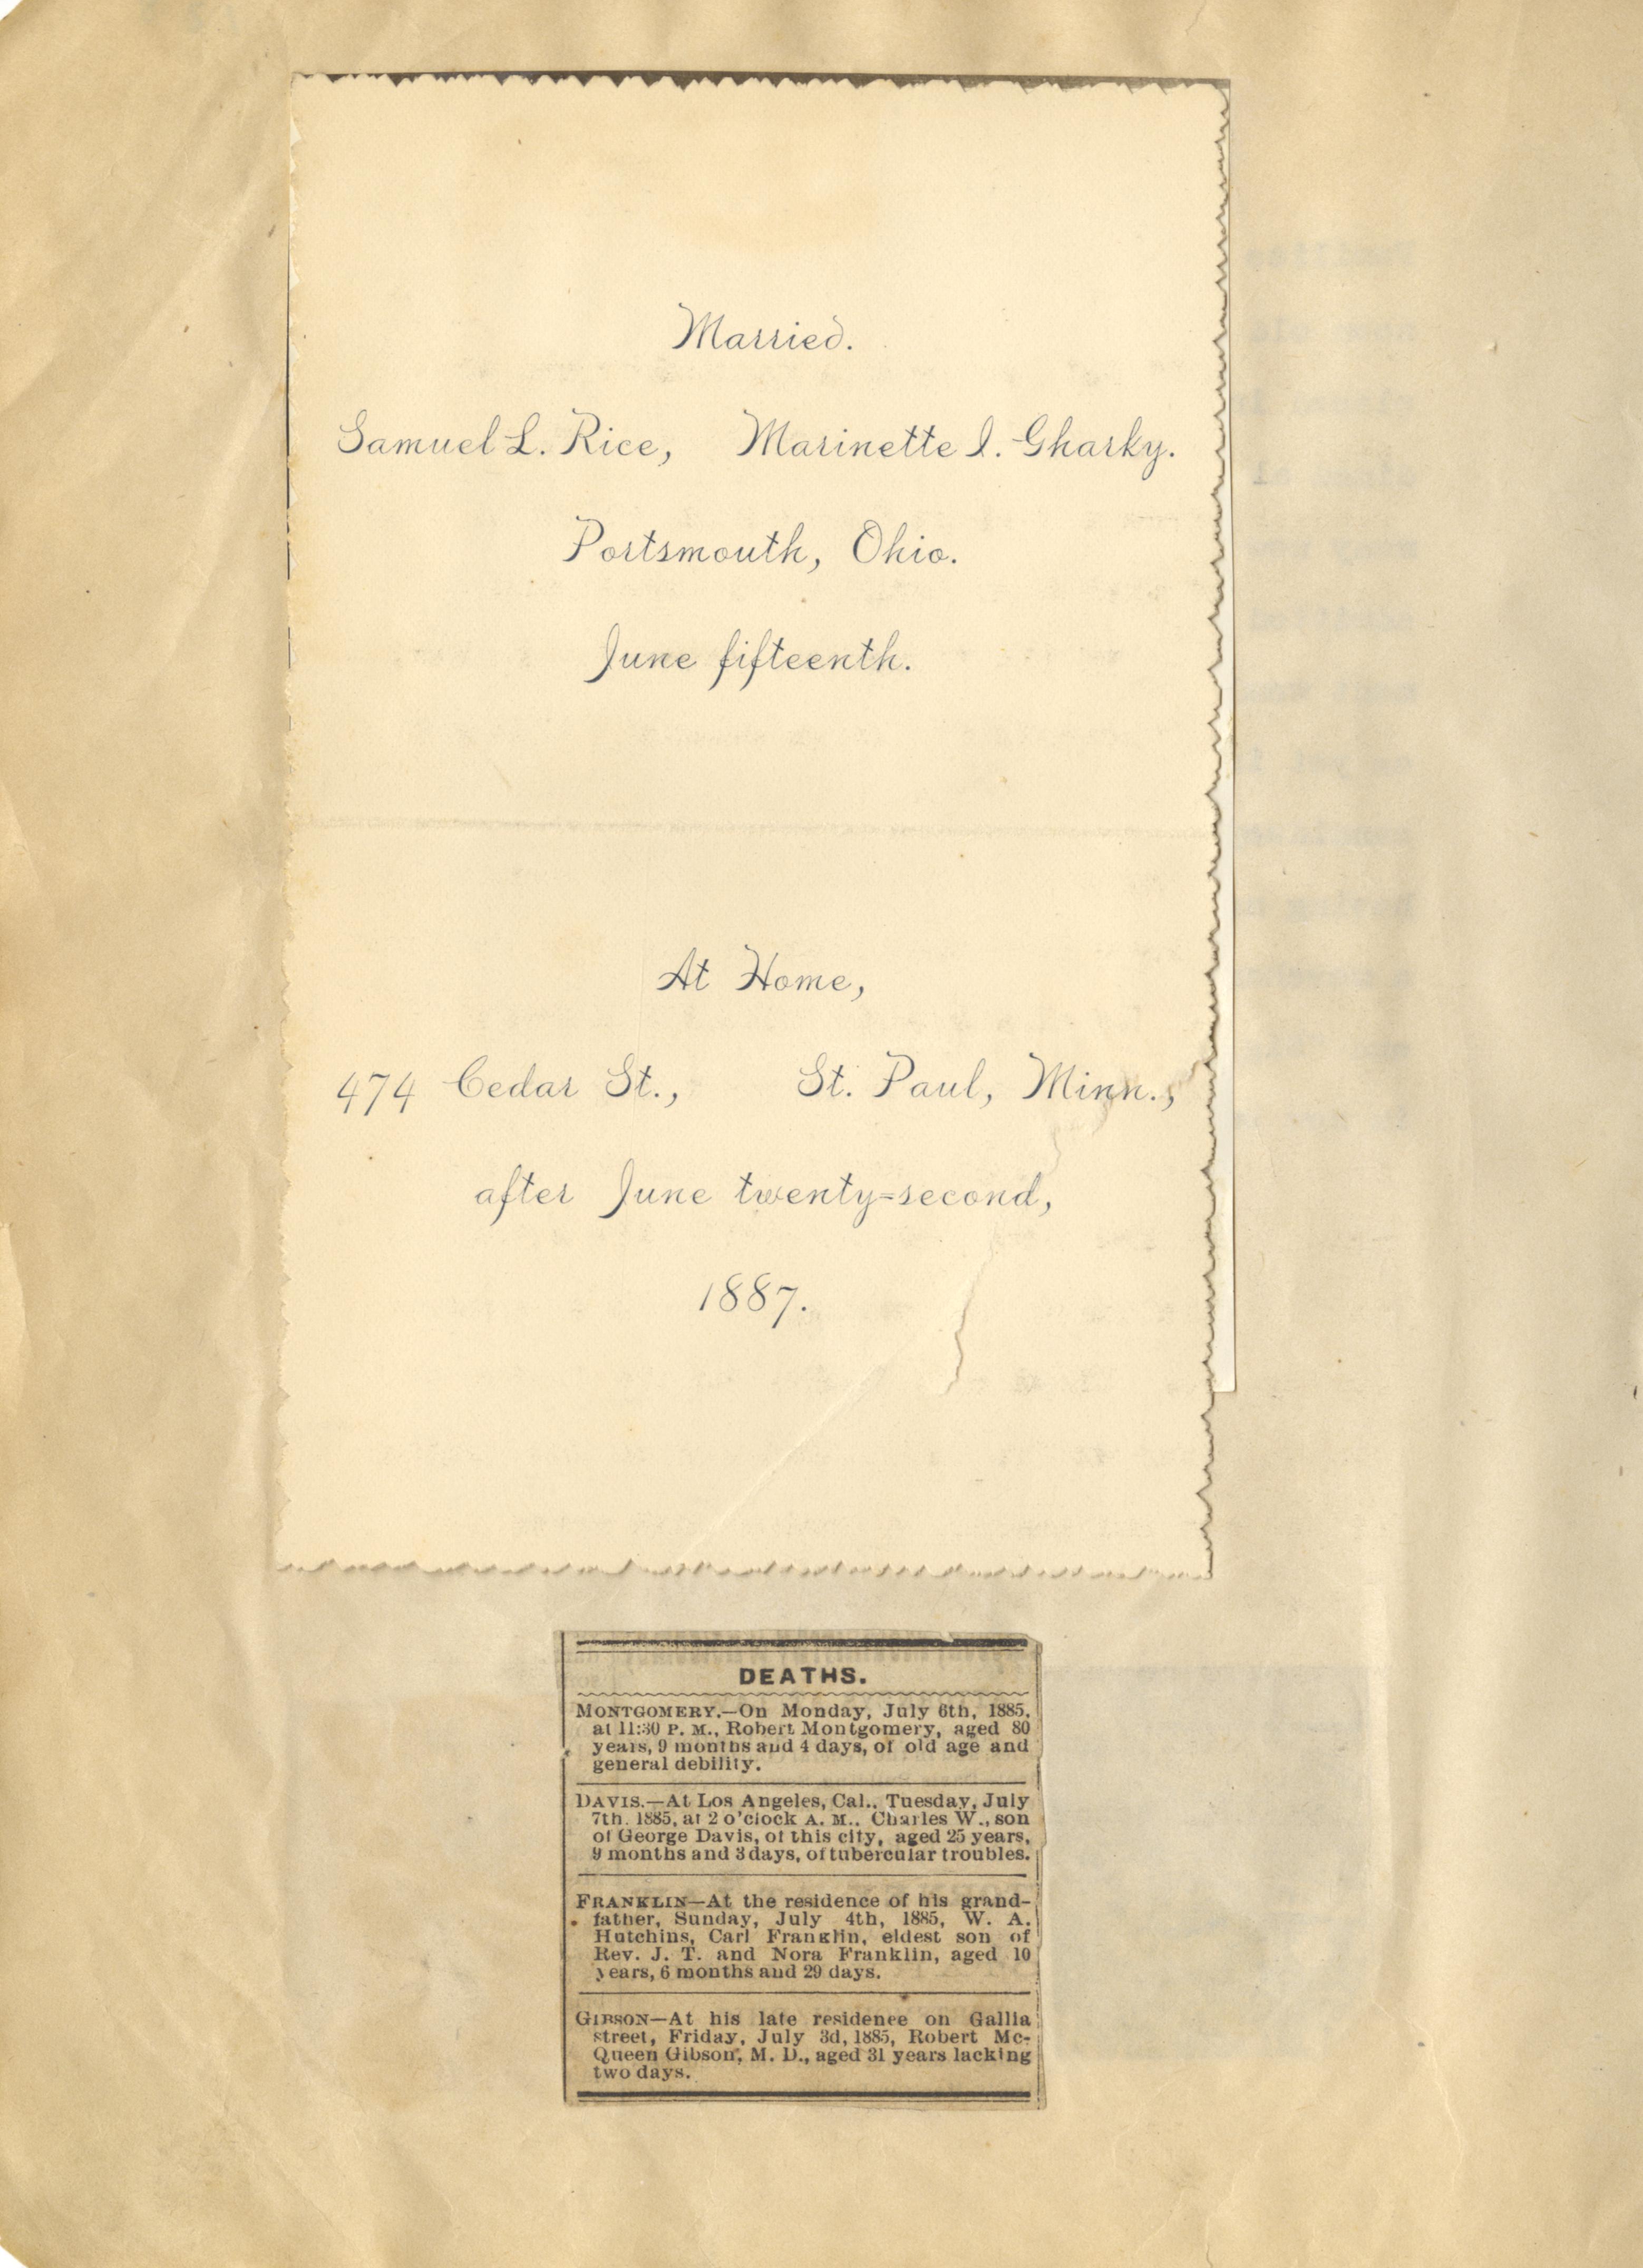 Married.
Samuel L. Rice, Marinette I. Gharky.
Portsmouth, Ohio.
June fifteenth.
At Home,
474 Cedar St., St. Paul, Minn.,
after June twenty=second,
1887.
DEATHS.
MONTGOMERY.—On Monday, July 6th, 1885,
at 11:30 P. M., Robert Montgomery, aged 80
years, 9 months and 4 days, of old age and
general debility.
DAVIS.—At Los Angeles, Cal., Tuesday, July
7th, 1885, at 2 o'clock A. M., Charles W., son
of George Davis, of this city, aged 25 years,
9 months and 3 days, of tubercular troubles.
FRANKLIN—At the residence of his grand-
father, Sunday, July 4th, 1885, W. A.
Hutchins, Carl Franklin, eldest son of
Rev. J. T. and Nora Franklin, aged 10
years, 6 months and 29 days.
GIBSON—At his late residence on Gallia
street, Friday, July 3d, 1885, Robert Mc-
Queen Gibson, M. D., aged 31 years lacking
two days.